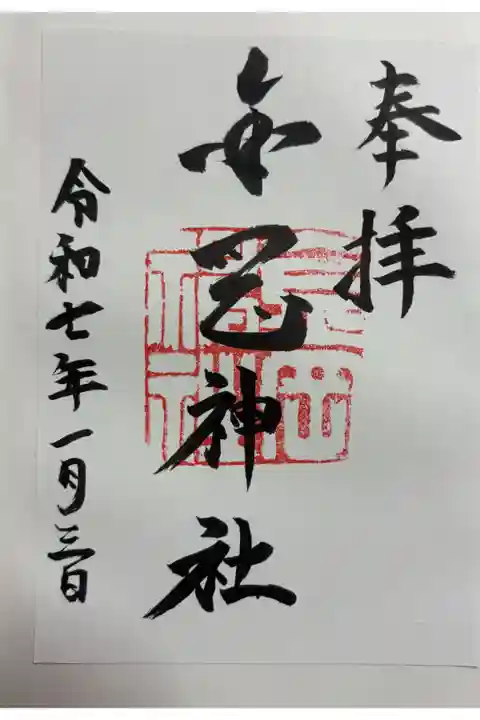 奉拝
金岡神社
令和七年一月三日